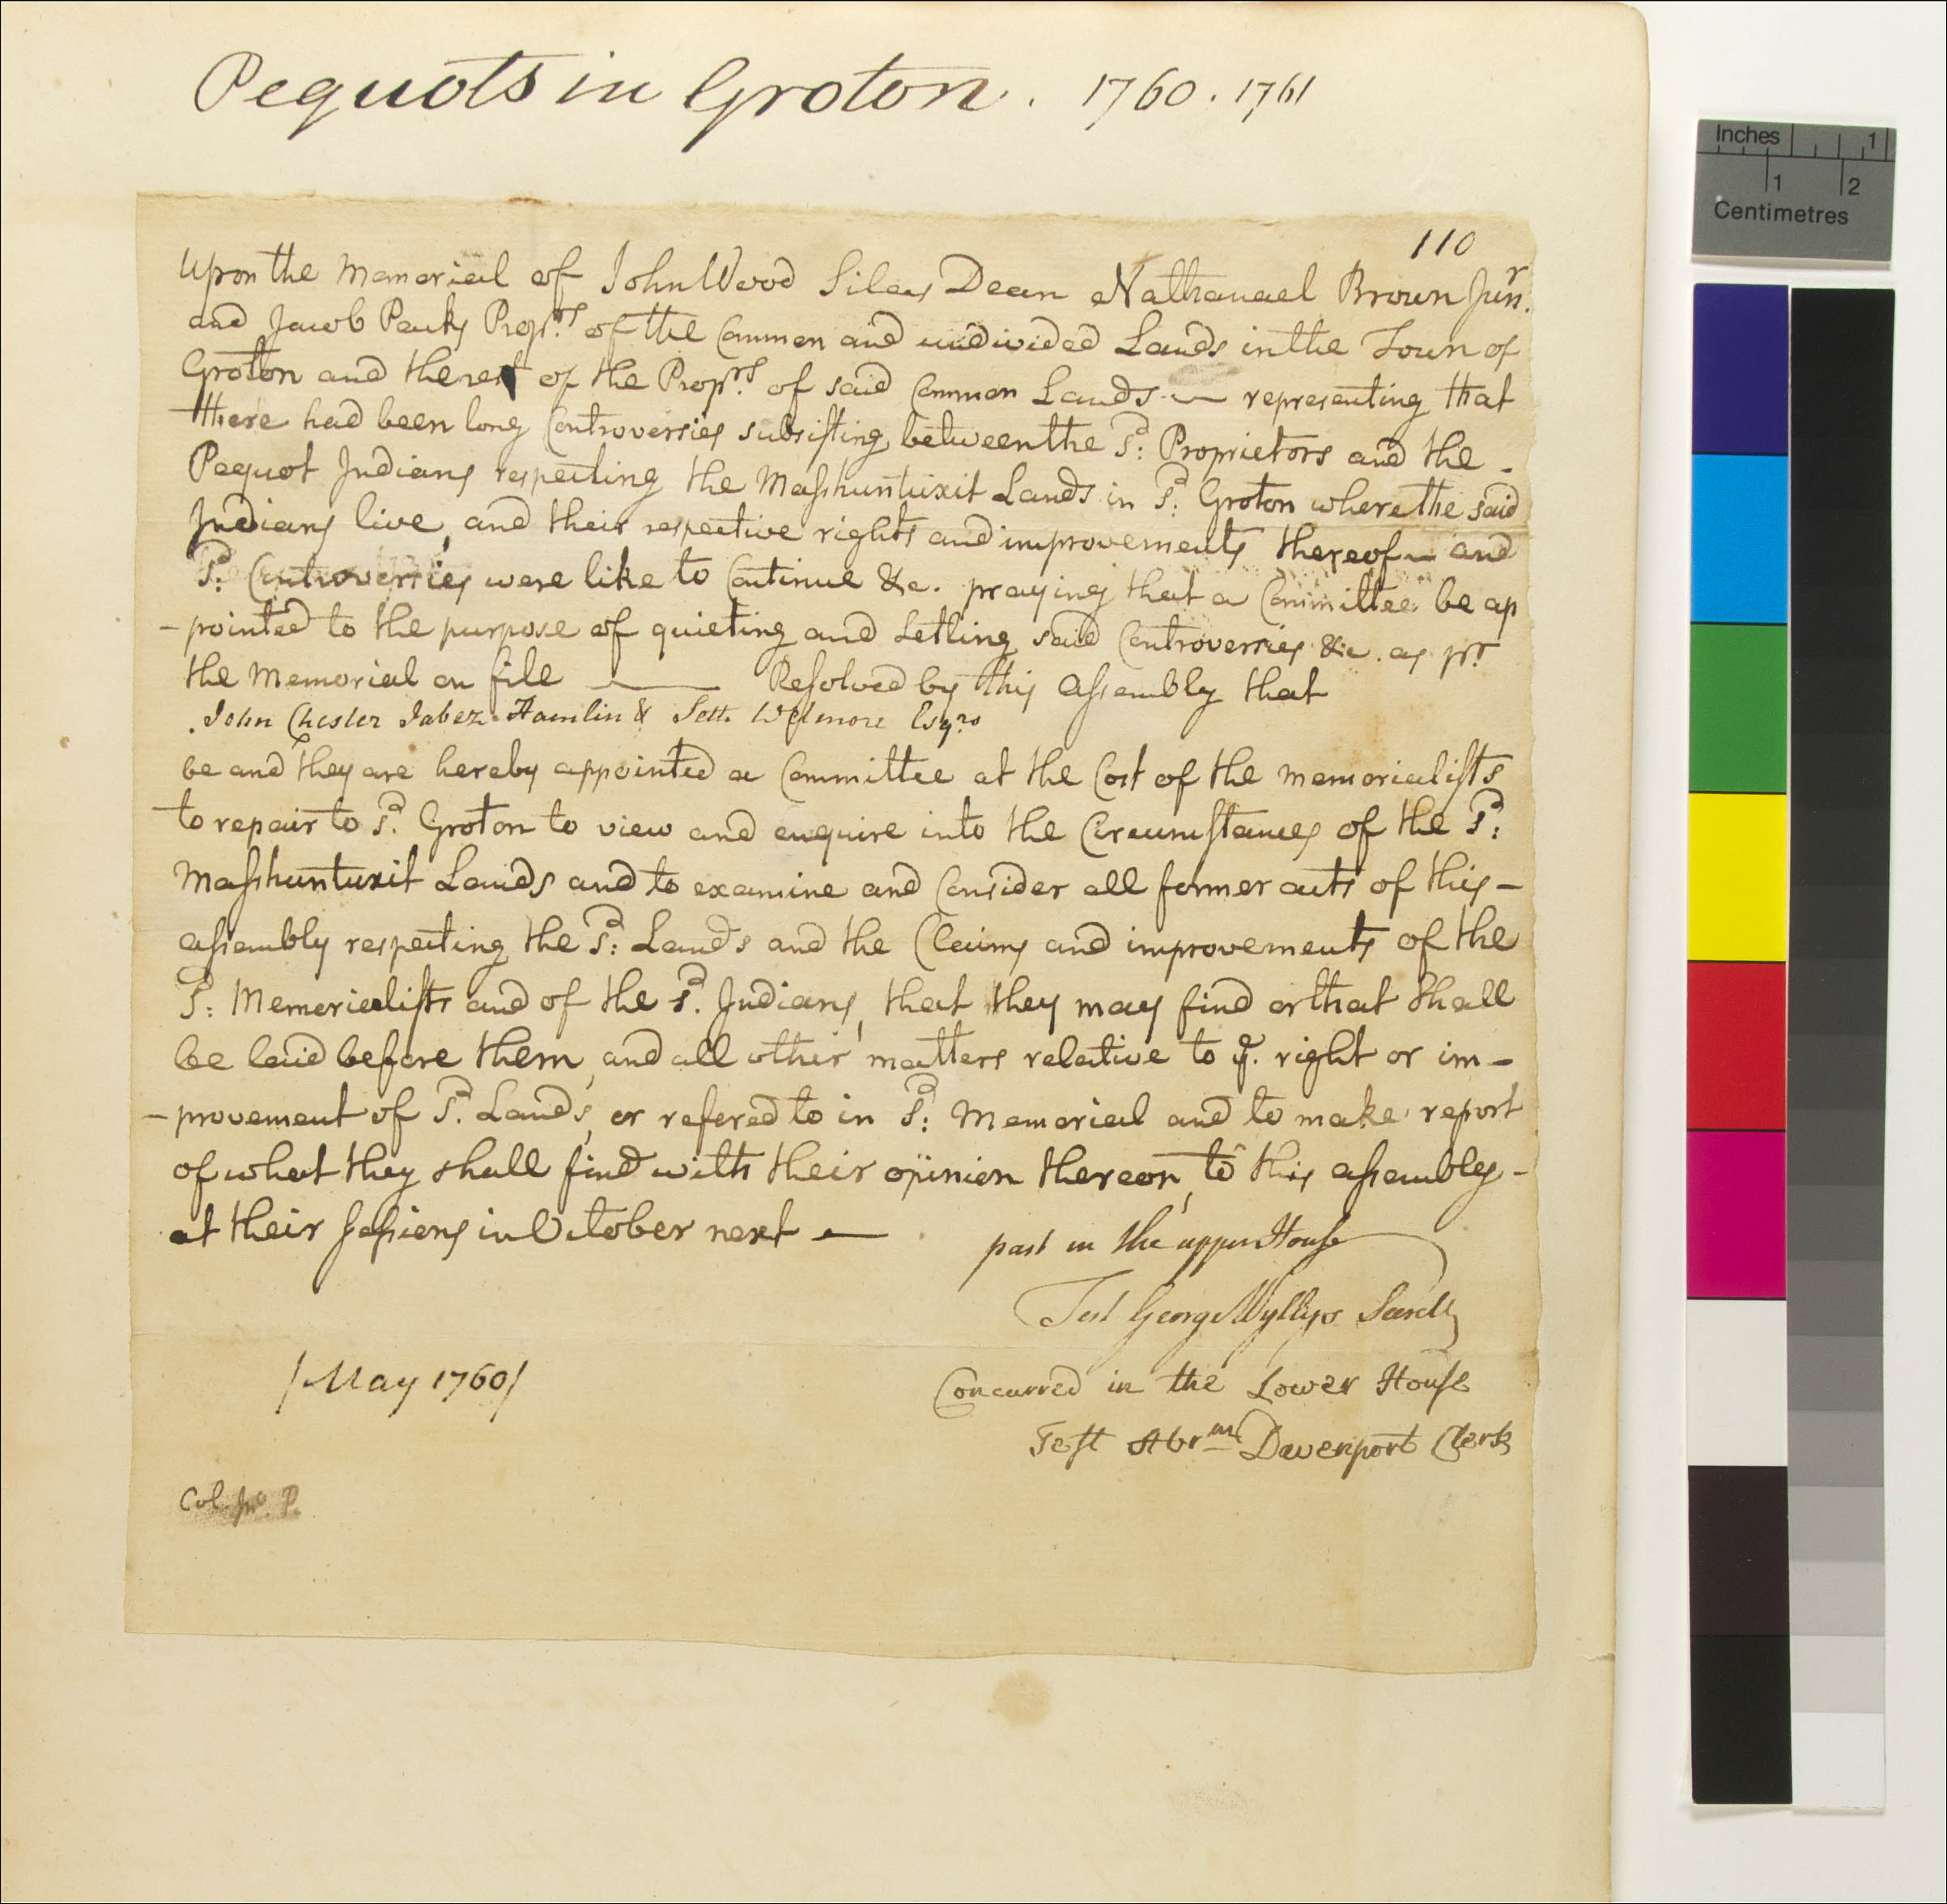 Pequots in Groton. 1760. 1761
110
Upon the Memorial of John Wood Silas Dean Nathanael Brown Junr.
and Jacob Parks Proprs. of the Common and undivided Lands in the Town of
Groton and the rest of the Proprs. of said Common Lands — representing that
there had been long Controversies subsisting between the Sd: Proprietors and the -
Pequot Indians respecting the Mashuntuxit Lands in Sd: Groton where the said
Indians live, and their respective rights and improvements thereof — and
Sd: Controversies were like to Continue &c. praying that a Committee be ap
-pointed to the purpose of quieting and Setling said Controversies &c. as pr.
the Memorial on file — Resolved by this Assembly that
John Chester Jabez Hamlin & Seth Wetmore Esqrs
be and they are hereby appointed a Committee at the Cost of the memorialists
to repair to Sd. Groton to view and enquire into the Circumstances of the Sd:
Mashuntuxit Lands and to examine and Consider all former acts of this -
assembly respecting the Sd: Lands and the Claims and improvements of the
Sd: Memorialists and of the Sd. Indians, that they may find or that Shall
be laid before them, and all other matters relative to ye. right or im-
-provement of Sd. Lands, or refered to in Sd: Memorial and to make report
of what they shall find with their opinion thereon, to this assembly -
at their Sessions in October next —
past in the upper House
Test George Wyllys Secrety
/May 1760/
Concurred in the Lower House
Test Abrm Davenport Clerk
Col. Jno. P.
Inches 1
1 2
Centimetres